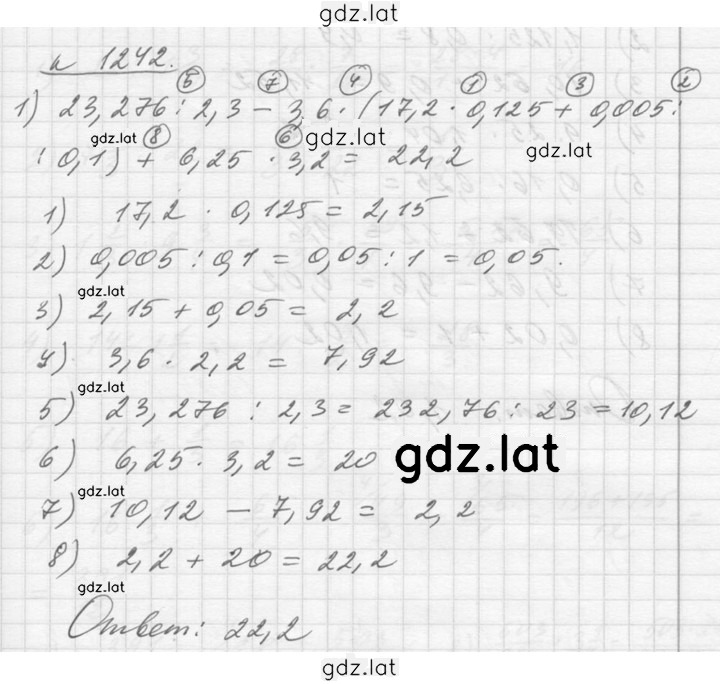 gdz.lat
н 1242.
5 7 4 1 3 2
1) 23,276 : 2,3 − 3,6 · (17,2 · 0,125 + 0,005 :
gdz.lat 8 6 gdz.lat gdz.lat
: 0,1) + 6,25 · 3,2 = 22,2
1) 17,2 · 0,125 = 2,15
2) 0,005 : 0,1 = 0,05 : 1 = 0,05.
gdz.lat
3) 2,15 + 0,05 = 2,2
4) 3,6 · 2,2 = 7,92
gdz.lat
5) 23,276 : 2,3 = 232,76 : 23 = 10,12
6) 6,25 · 3,2 = 20
gdz.lat
gdz.lat
7) 10,12 − 7,92 = 2,2
8) 2,2 + 20 = 22,2
gdz.lat
Ответ: 22,2
gdz.lat